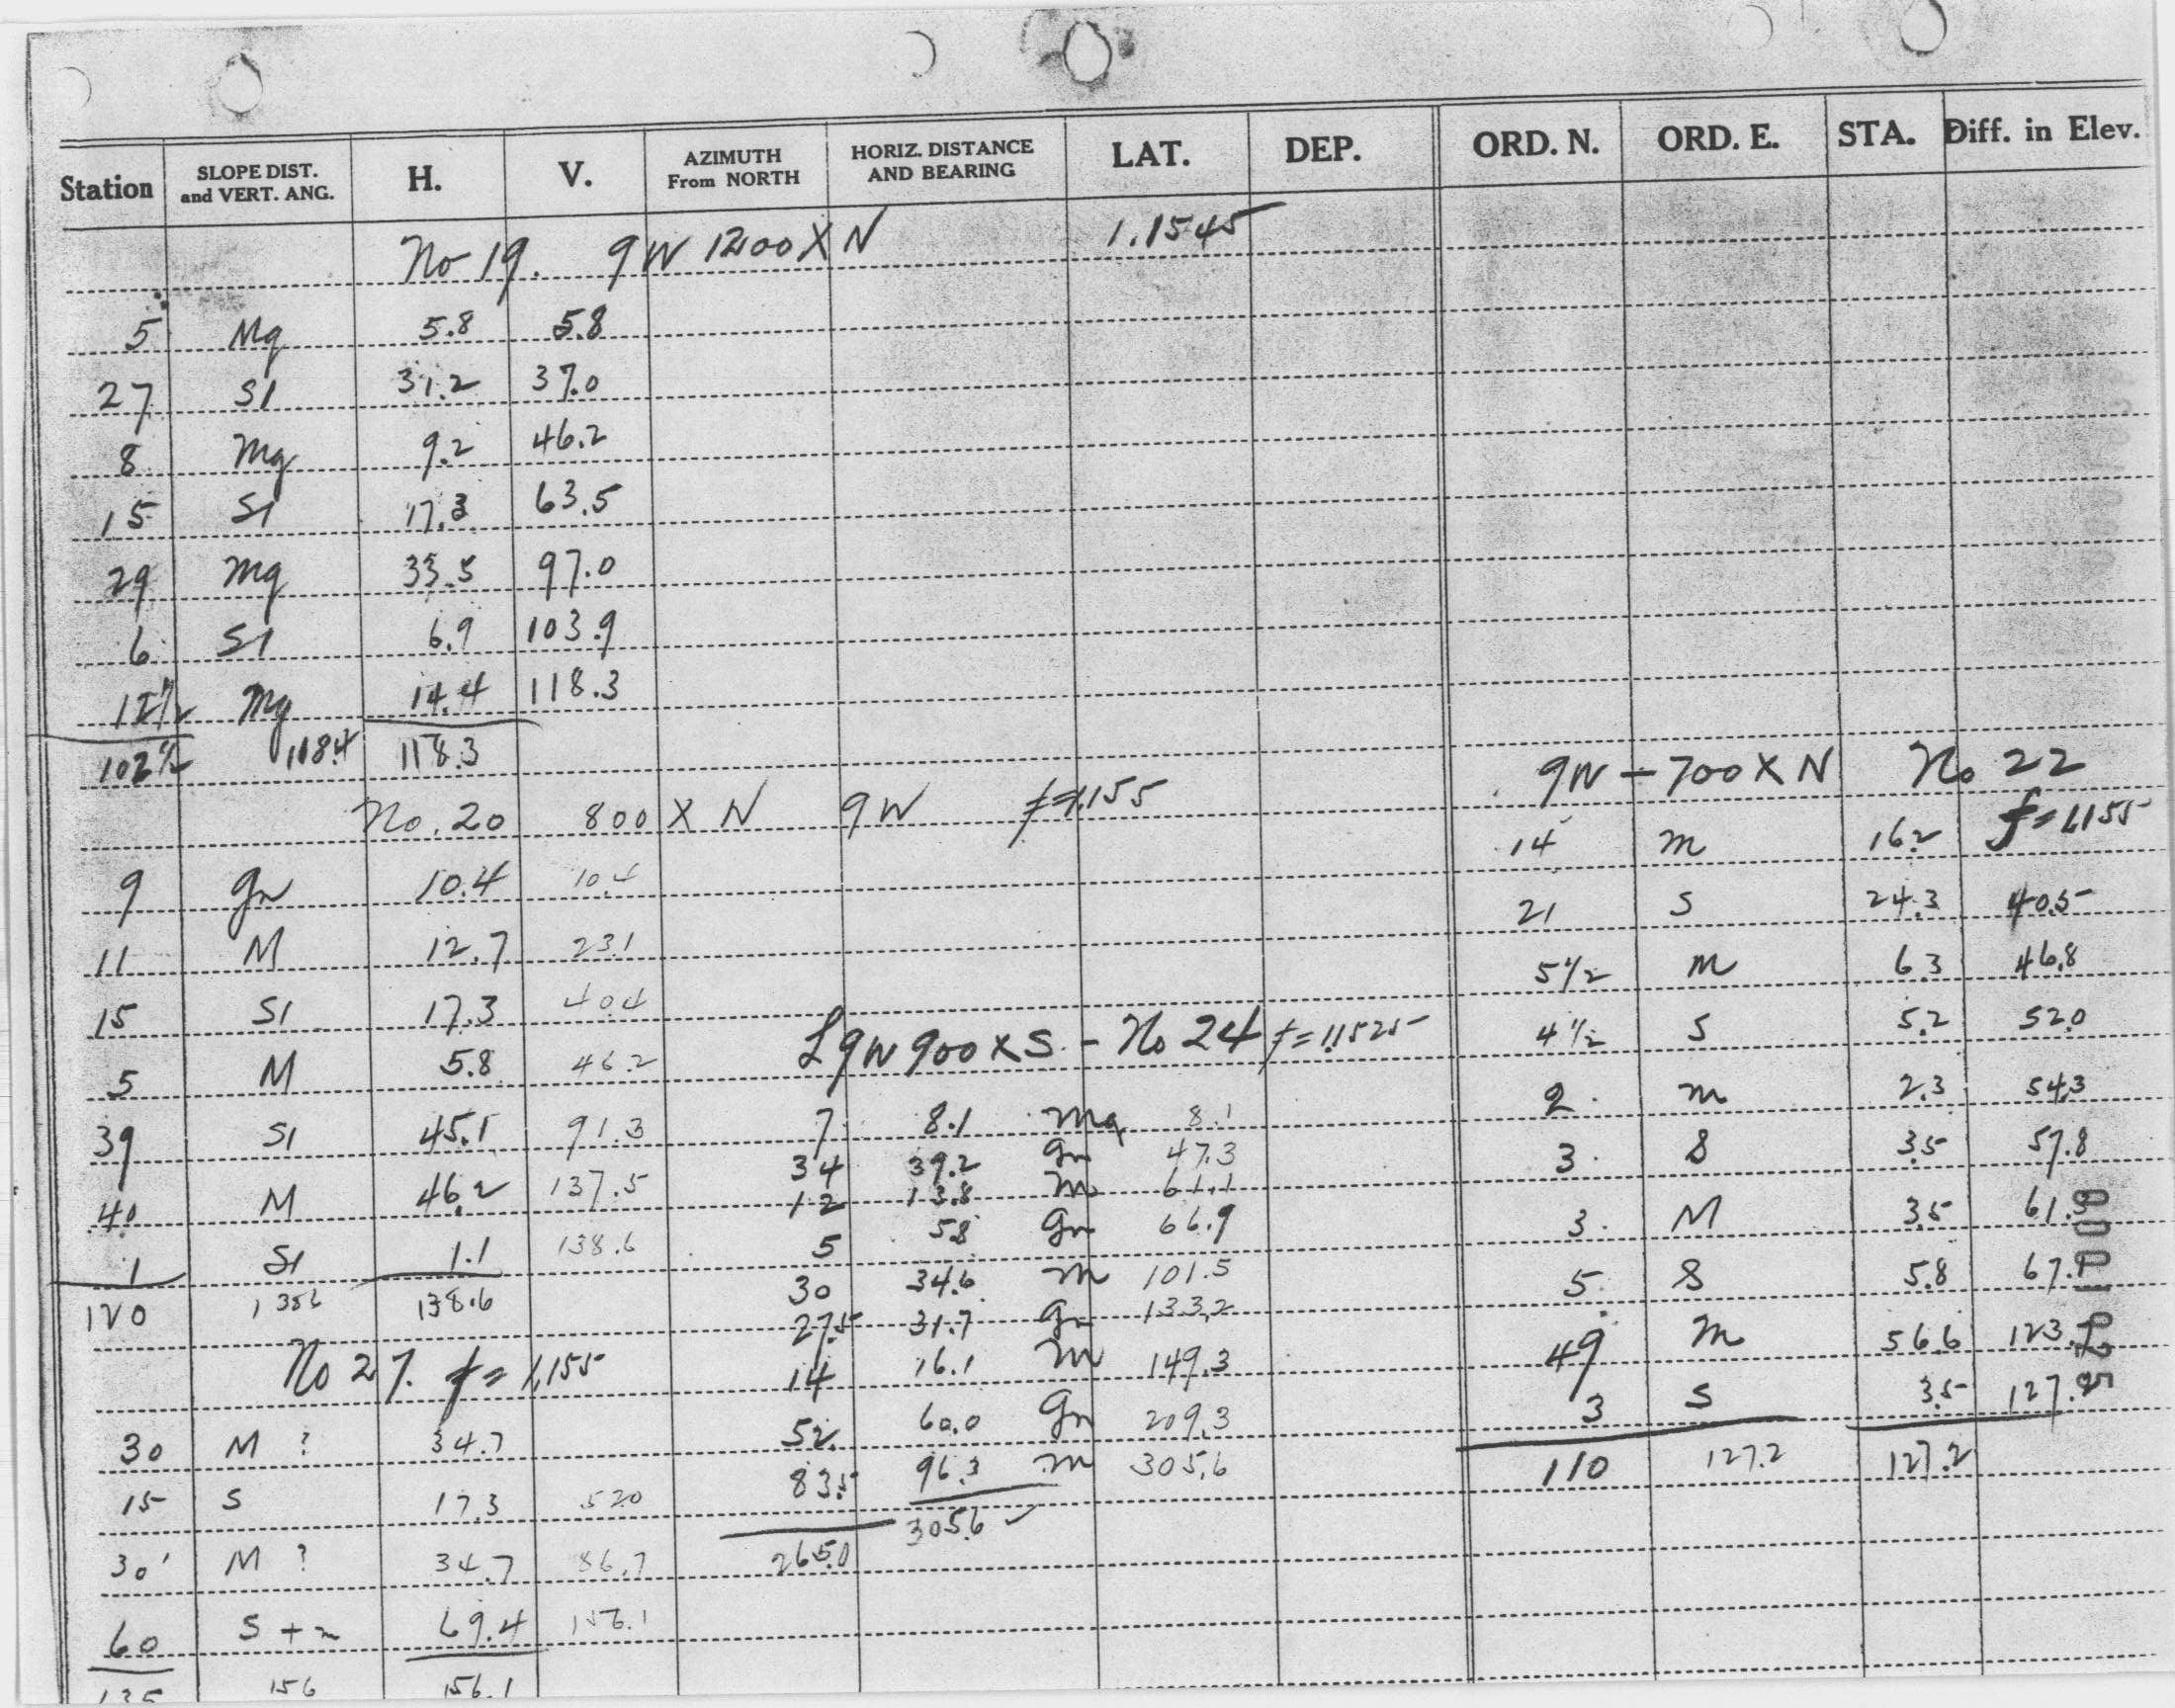 Station SLOPE DIST. and VERT. ANG. H. V. AZIMUTH From NORTH HORIZ. DISTANCE AND BEARING LAT. DEP. ORD. N. ORD. E. STA. Diff. in Elev.
No 19. 9W 1200 X N 1.1545
5 Mg 5.8 5.8
27 Sl 31.2 37.0
8 Mg 9.2 46.2
15 Sl 17.3 63.5
29 Mg 33.5 97.0
6 Sl 6.9 103.9
12 1/2 Mg 14.4 118.3
102 1/2 118.4 118.3
No. 20 800 X N 9W f=1.155
9 Gn 10.4 10.4
11 M 12.7 23.1
15 Sl 17.3 40.4
5 M 5.8 46.2
39 Sl 45.1 91.3
40 M 46.2 137.5
1 Sl 1.1 138.6
120 138.6 138.6
No 27. f = 1.155
30 M ? 34.7
15 S 17.3 52.0
30' M ? 34.7 86.7
60 S + m 69.4 156.1
135 156 156.1
L9W 900 X S. - No 24 f = 1.1525
7 8.1 Mg 8.1
34 39.2 Gn 47.3
12 13.8 m 61.1
5 5.8 Gn 66.9
30 34.6 m 101.5
27.5 31.7 Gn 133.2
14 16.1 m 149.3
52. 60.0 Gn 209.3
83.5 96.3 m 305.6
265.0 305.6 ✓
9W - 700 X N No 22
f = 1.155
14 m 16.2
21 S 24.3 40.5
5 1/2 m 6.3 46.8
4 1/2 S 5.2 52.0
2. m 2.3 54.3
3. S 3.5 57.8
3. M 3.5 61.3
5. S 5.8 67.1
49 m 56.6 123.7
3 S 3.5 127.2
110 127.2 127.2